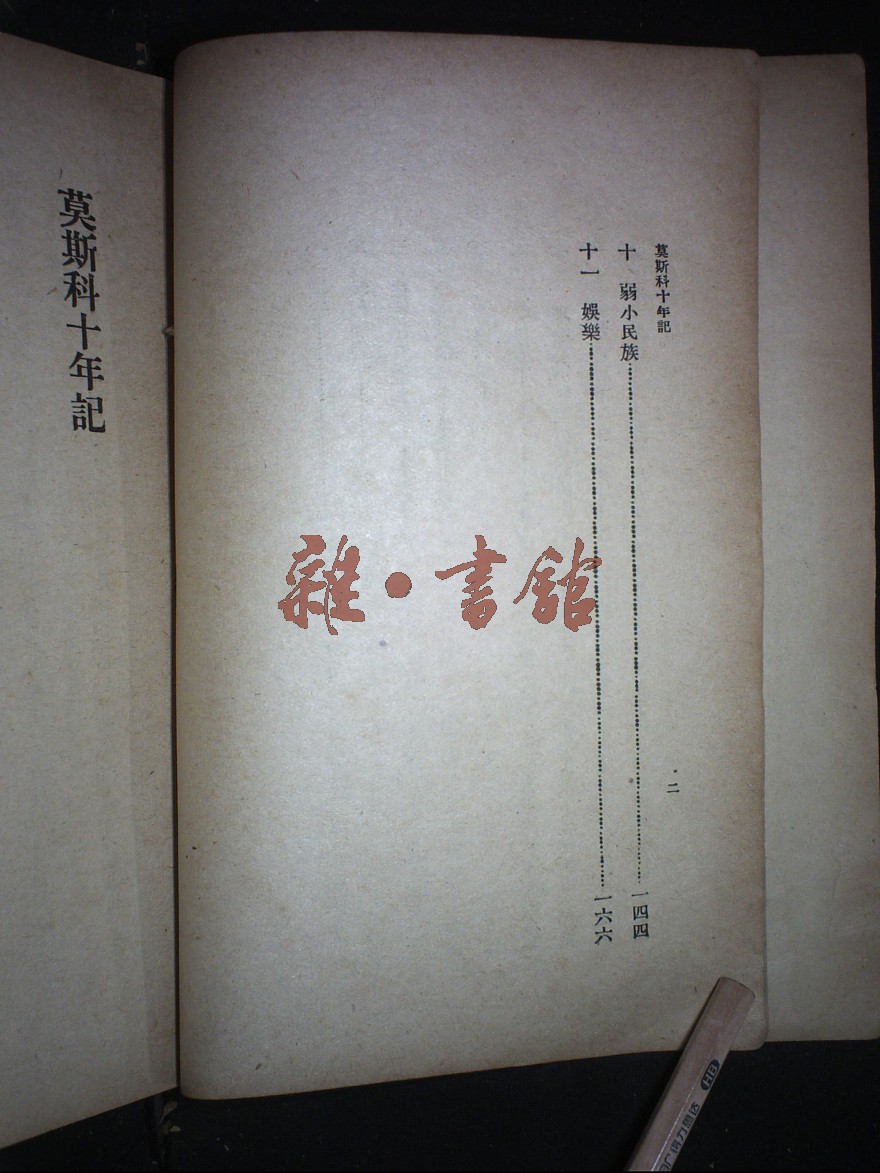 莫斯科十年記
二
十 弱小民族 一四四
十一 娛樂 一六六
莫斯科十年記
雜·書館
HB